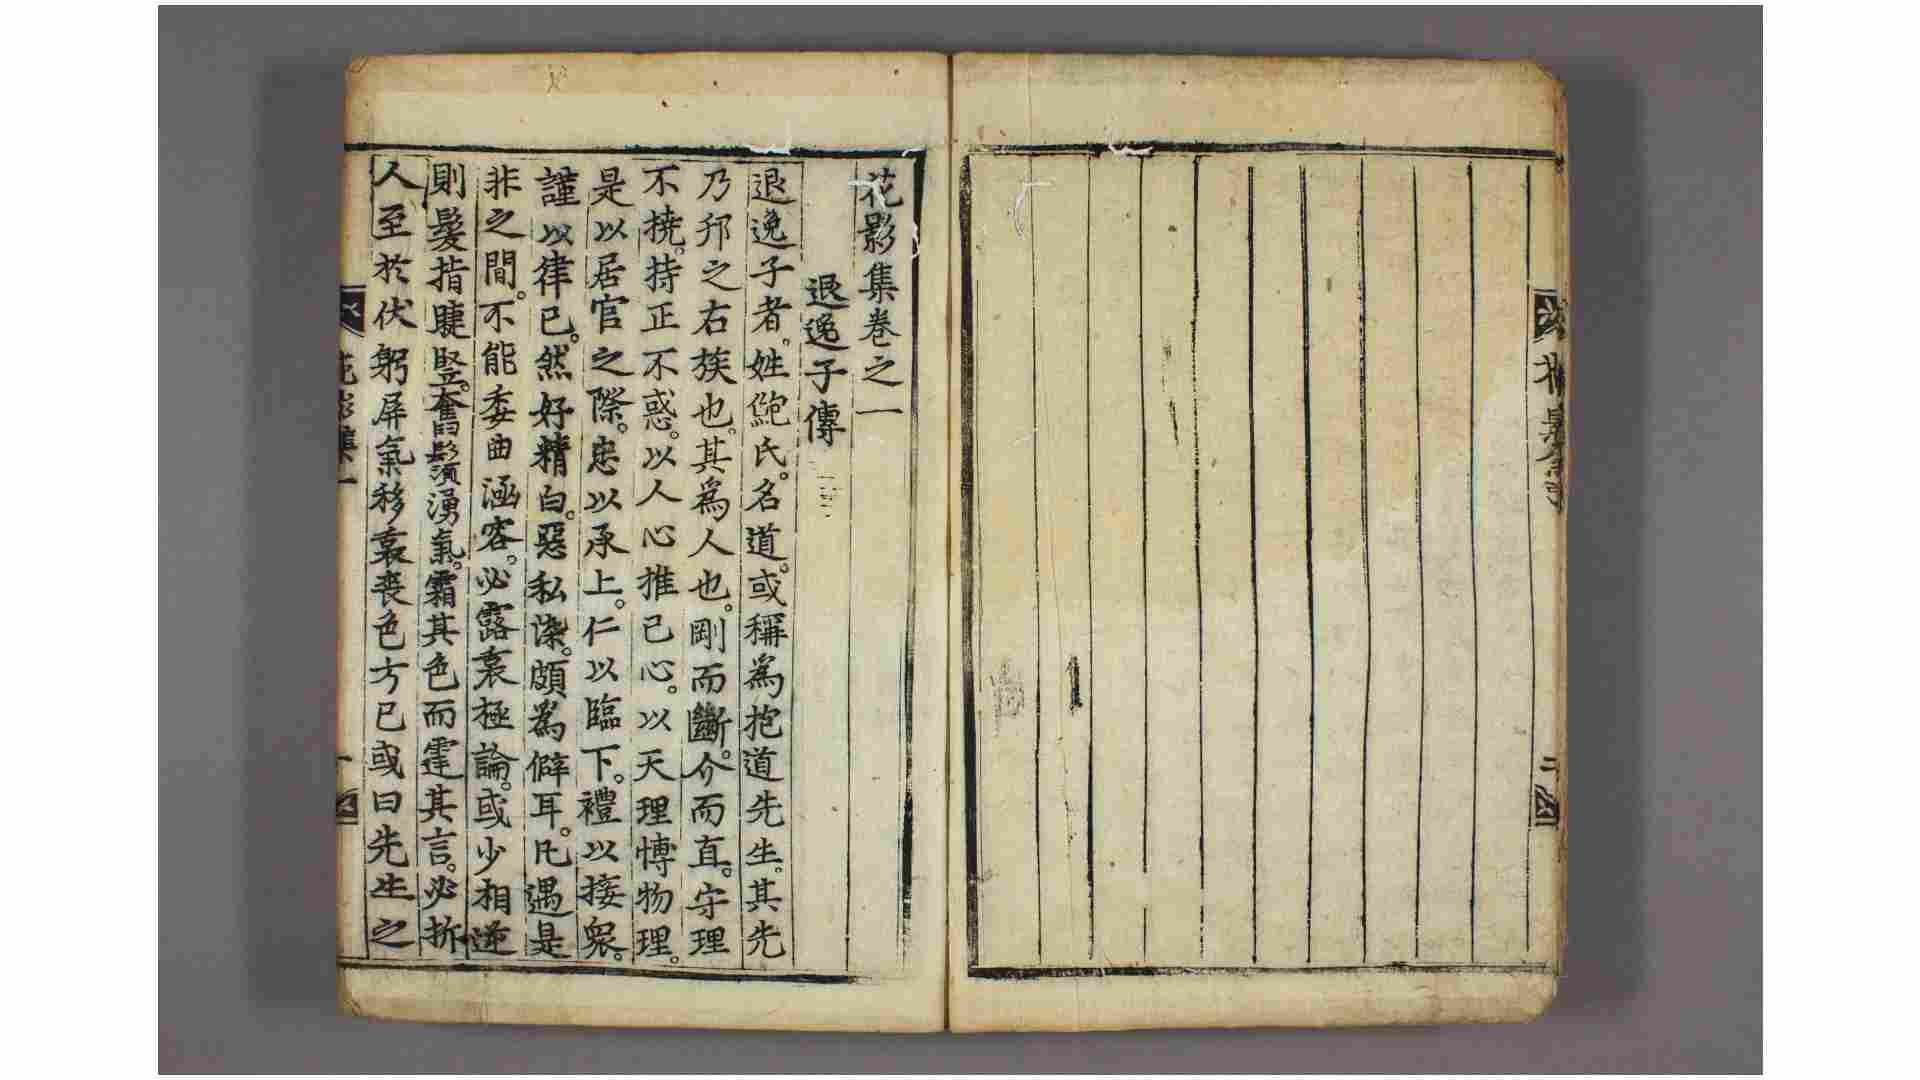 花影集卷之一
退逸子傳
退逸子者。姓鮑氏。名道。或稱爲抱道先生。其先
乃邦之右族也。其爲人也。剛而斷。介而直。守理
不撓。持正不惑。以人心推己心。以天理慱物理。
是以居官之際。忠以承上。仁以臨下。禮以接衆。
謹以律已。然好精白。惡私染。頗爲僻耳。凡遇是
非之間。不能委曲涵容。必露衷極論。或少相逆
則髮指睫竪。奮鬚湧氣。霜其色而霆其言。必折
人至於伏躬屏氣移衷喪色方已或曰先生之
花影集一